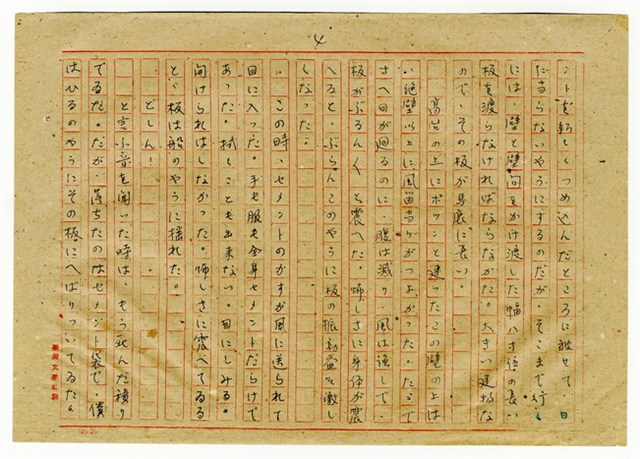 4
ントを転しくつめ込んだところに被せて、日
に当らないやうにするのだが、そこまで行く
には、壁と壁間をかけ渡した幅八寸位の長い
板を渡らなければならなかた。大きい建物な
ので、その板が馬鹿に長い。
高台の上にポツンと建ったこの壁の上は
い絶壁以上に風當りがつよかった。たゞで
さへ目が廻るのに、腹は減り、風は強しで、
板がぶるんくと震へた。怖しさに身体が震
へると、ぶらんこのやうに板の振動益々激し
くなった。
この時、セメントのかすが風に送られて
目に入った。手も服も全身セメントだらけで
あった。拭くことも出来ない。目にしみる。
向けられはしなかった。怖しさに震べてゐる
と、板は船のやうに揺れた。
どしん！
と言ふ音を聞いた時は、もう死んだ積り
でゐた。だが、落ちたのはセメント袋で、僕
はひるのやうにその板にへばりついてゐた。